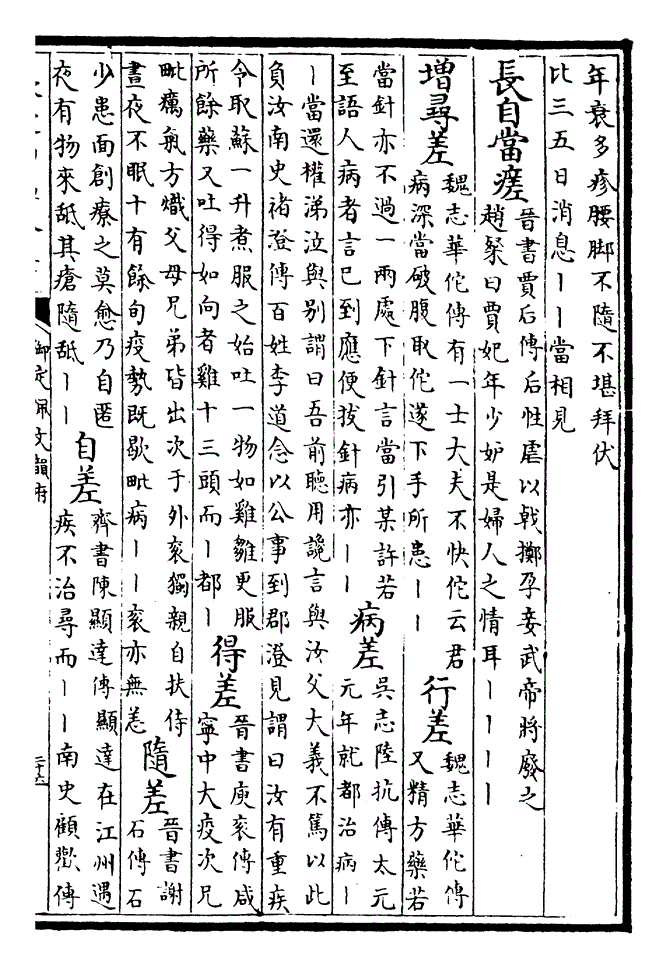 年衰多疹腰脚不隨不堪拜伏
比三五日消息丨丨當相見
長自當瘥
晉書賈后傳后性虐以戟擲孕妾武帝將廢之
趙粲曰賈妃年少妒是婦人之情耳丨丨丨丨
增尋差
魏志華佗傳有一士大夫不快佗云君
病深當破腹取佗遂下手所患丨丨
行差
魏志華佗傳
又精方藥若
當針亦不過一兩處下針言當引某許若
至語人病者言已到應便拔針病亦丨丨
病差
吳志陸抗傳太元
元年就都治病丨
丨當還權涕泣與別謂曰吾前聽用讒言與汝父大義不篤以此
負汝南史褚澄傳百姓李道念以公事到郡澄見謂曰汝有重疾
令取蘇一升煮服之始吐一物如雞雛更服
所餘藥又吐得如向者雞十三頭而丨都丨
得差
晉書庾袞傳咸
寧中大疫次兄
毗癘氣方熾父母兄弟皆出次于外袞獨親自扶侍
晝夜不眠十有餘旬疫勢既歇毗病丨丨袞亦無恙
隨差
晉書謝
石傳石
少患面創療之莫愈乃自匿
夜有物來舐其瘡隨舐丨丨
自差
齊書陳顯達傳顯達在江州遇
疾不治尋而丨丨南史顧歡傳
御定佩文韻府